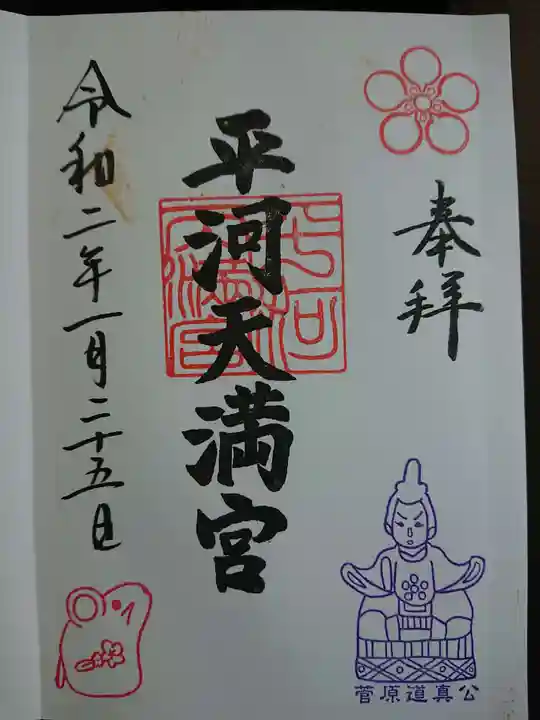 奉拝
平河天満宮
令和二年一月二十五日
菅原道真公